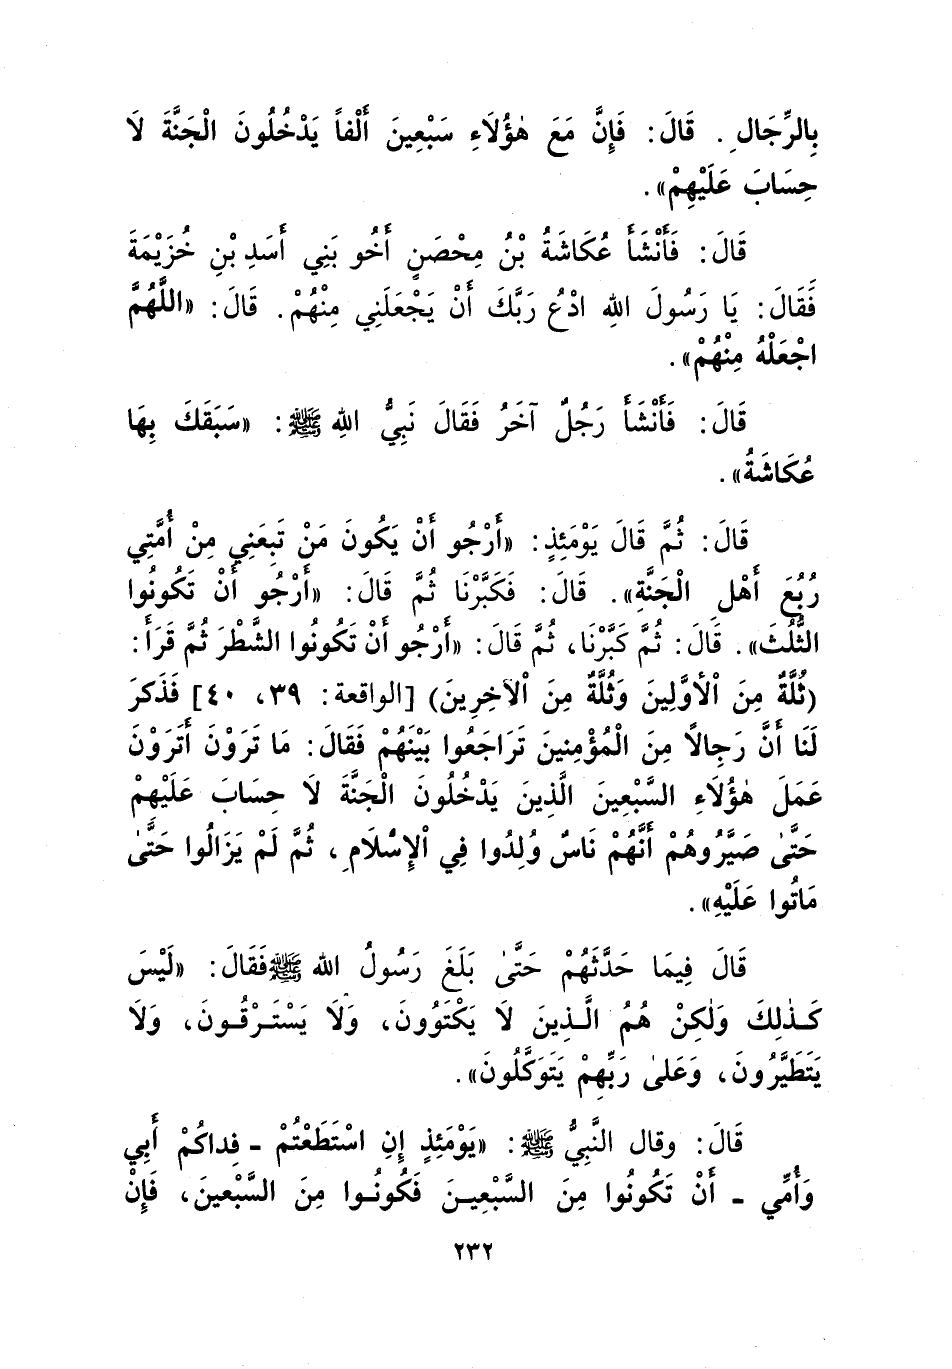 بِالرِّجَالِ. قَالَ: فَإِنَّ مَعَ هٰؤُلَاءِ سَبْعِينَ أَلْفاً يَدْخُلُونَ الْجَنَّةَ لَا
حِسَابَ عَلَيْهِمْ».
قَالَ: فَأَنْشَأَ عُكَاشَةُ بْنُ مِحْصَنٍ أَخُو بَنِي أَسَدِ بْنِ خُزَيْمَةَ
فَقَالَ: يَا رَسُولَ اللهِ ادْعُ رَبَّكَ أَنْ يَجْعَلَنِي مِنْهُمْ. قَالَ: «اللَّهُمَّ
اجْعَلْهُ مِنْهُمْ».
قَالَ: فَأَنْشَأَ رَجُلٌ آخَرُ فَقَالَ نَبِيُّ اللهِ ﷺ: «سَبَقَكَ بِهَا
عُكَاشَةُ».
قَالَ: ثُمَّ قَالَ يَوْمَئِذٍ: «أَرْجُو أَنْ يَكُونَ مَنْ تَبِعَنِي مِنْ أُمَّتِي
رُبُعَ أَهْلِ الْجَنَّةِ». قَالَ: فَكَبَّرْنَا ثُمَّ قَالَ: «أَرْجُو أَنْ تَكُونُوا
الثُّلُثَ». قَالَ: ثُمَّ كَبَّرْنَا، ثُمَّ قَالَ: «أَرْجُو أَنْ تَكُونُوا الشَّطْرَ ثُمَّ قَرَأَ:
(ثُلَّةٌ مِنَ الْأَوَّلِينَ وَثُلَّةٌ مِنَ الْآخِرِينَ) [الواقعة: ٣٩، ٤٠] فَذَكَرَ
لَنَا أَنَّ رَجِالاً مِنَ الْمُؤْمِنِينَ تَرَاجَعُوا بَيْنَهُمْ فَقَالَ: مَا تَرَوْنَ أَتَرَوْنَ
عَمَلَ هٰؤُلَاءِ السَّبْعِينَ الَّذِينَ يَدْخُلُونَ الْجَنَّةَ لَا حِسَابَ عَلَيْهِمْ
حَتَّىٰ صَيَّرُوهُمْ أَنَّهُمْ نَاسٌ وُلِدُوا فِي الْإِسْلَامِ، ثُمَّ لَمْ يَزَالُوا حَتَّىٰ
مَاتُوا عَلَيْهِ».
قَالَ فِيمَا حَدَّثَهُمْ حَتَّىٰ بَلَغَ رَسُولُ اللهِ ﷺ فَقَالَ: «لَيْسَ
كَـذٰلِكَ وَلٰكِنْ هُمُ الَّـذِينَ لَا يَكْتَوُونَ، وَلَا يَسْتَـرْقُـونَ، وَلَا
يَتَطَيَّرُونَ، وَعَلىٰ رَبِّهِمْ يَتَوَكَّلُونَ».
قَالَ: وقال النَّبِيُّ ﷺ: «يَوْمَئِذٍ إِنِ اسْتَطَعْتُمْ - فِداكُمْ أَبِي
وَأُمِّي - أَنْ تَكُونُوا مِنَ السَّبْعِيـنَ فَكُونُـوا مِنَ السَّبْعينَ، فَإِنْ
٢٣٢